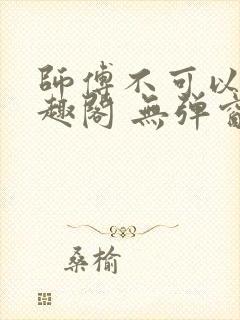 師傅不可以
趣閣 無弹窗
桑榆